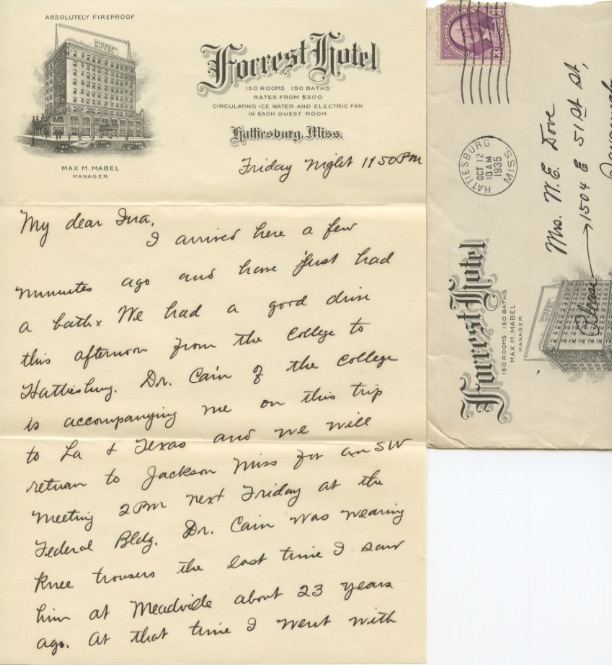 ABSOLUTELY FIREPROOF
Forrest Hotel
150 ROOMS 150 BATHS
RATES FROM $2.00
CIRCULATING ICE WATER AND ELECTRIC FAN
IN EACH GUEST ROOM
Hattiesburg, Miss.
MAX M. MABEL
MANAGER
Friday Night 11 50 PM
My dear Ina.
I arrived here a few
minutes ago and have just had
a bath. We had a good drive
this afternoon from the College to
Hattiesburg. Dr. Cain of the College
is accompanying me on this trip
to La & Texas and we will
return to Jackson Miss for an SW
meeting 2PM next Friday at the
Federal Bldg. Dr. Cain was wearing
knee trousers the last time I saw
him at Meadville about 23 years
ago. At that time I went with
HATTIESBURG
OCT 12
10 AM
1935
MISS.
Mrs. W. E. Dove
1504 E 51st St,
Forrest Hotel
150 ROOMS 150 BATHS
MAX M. MABEL
MANAGER